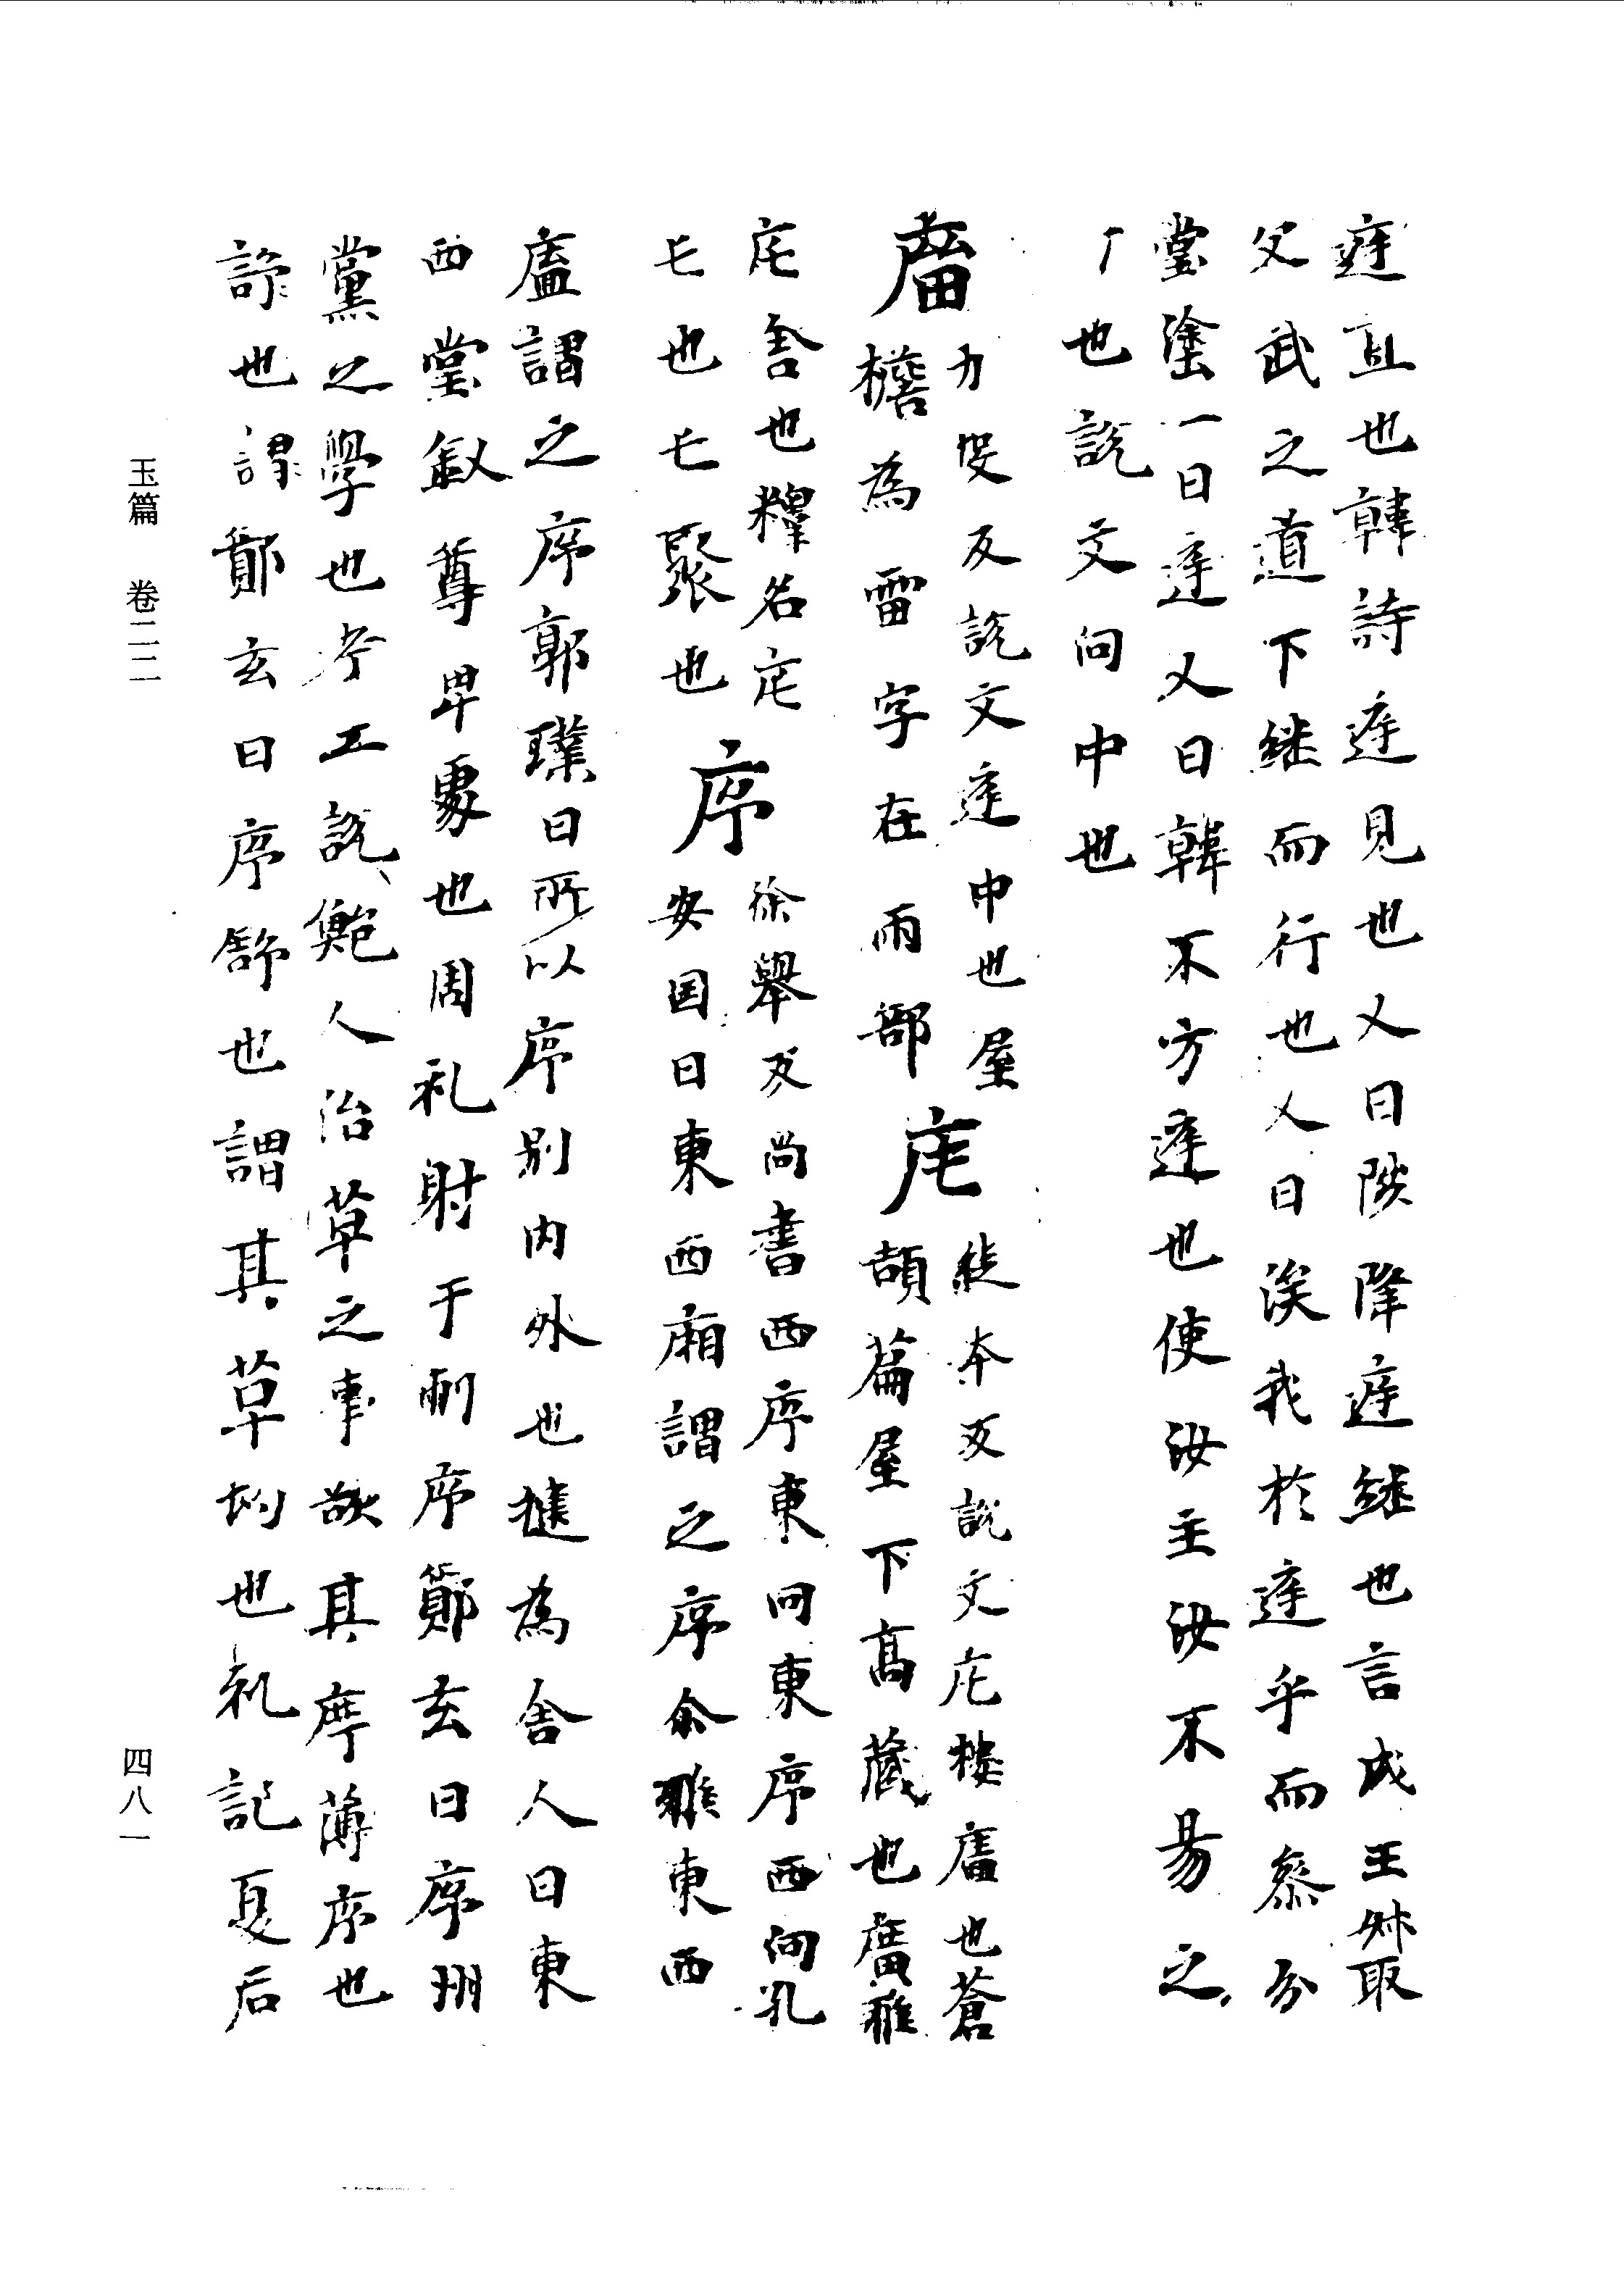 莛直也韓詩莛見也又曰陟降莛継也言成王叔取
父武之道下継而行也又曰俟我於莛乎而祭分
堂塗一曰莛又曰韓不方莛也使汝主汝不易之
丆也説文向中也
廇力叟反説文莛中也屋
檐為雷字在雨部
庉徒本反説文庉楼廧也蒼
頡篇屋下髙蔵也廣雅
庉舎也釋名庉
乇也乇聚也
序徐舉反尚書西序東向東序西向孔
安国曰東西廂謂之序尒雅東西
廬謂之序郭璞曰所以序別内外也㨿為舎人曰東
西堂叙尊卑䖏也周礼射于州序鄭玄曰序州
黨之學也考工説鮑人治草之事欲其序薄序也
諦也謂鄭玄曰序舒也謂其草均也礼記夏后
玉篇 卷二二
四八一